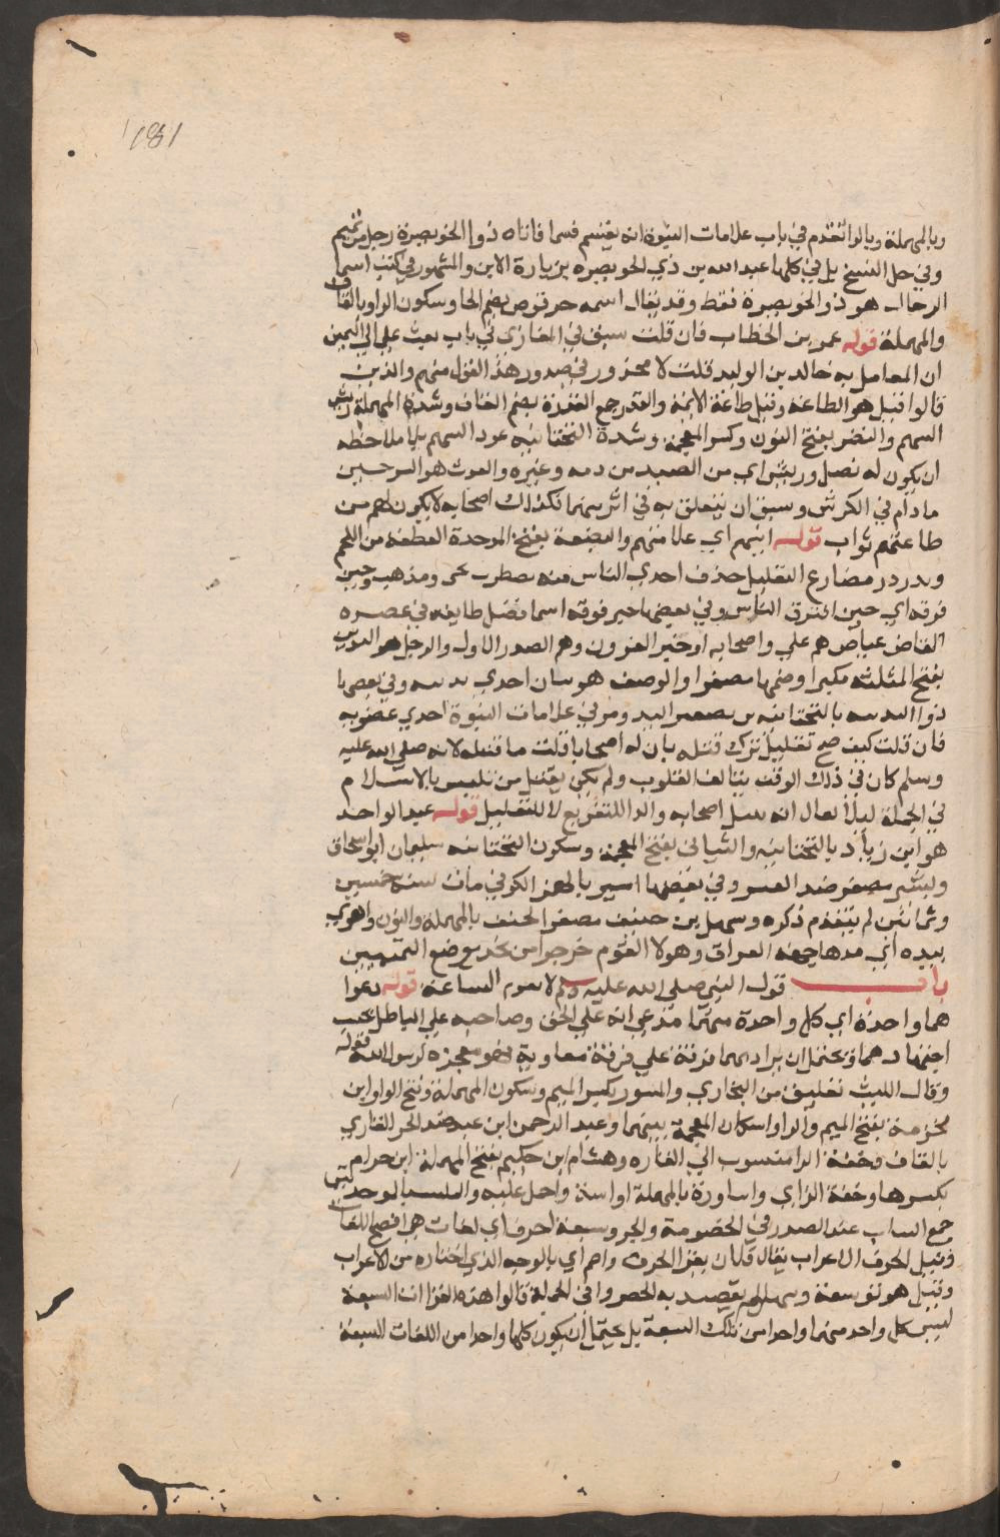 181
وبالمهملة وبالواتقدم في باب علامات النبوة انه يقسم قسما فاتاه ذوا الخويصرة رجل من تميم
وفي جل النسخ بل في كلها عبد الله بن ذي الخويصره بزيارة الابن والمشهور في كتب اسما
الرجال هو ذو الخويصرة فقط وقد يقال اسمه حرقوص بضم الحا وسكون الرا وبالقاف
والمهملة قوله عمر بن الخطاب فان قلت سبق في المغازي في باب بعث علي الي اليمن
ان المعامل به خالد بن الوليد قلت لا محذور في صدور هذا القول منهم والدين
قالوا قيل هو الطاعة وقيل طاعة الايمة والقدر جمع القذة بضم القاف وشدة المهملة ريش
السهم والنضر بفتح النون وكسر المعجمة وشدة التحتانيه عود السهم بلا ملاحظه
ان يكون له نصل وريش اي من الصيد من دمه وغيره والفرث هو السرجين
ما دام في الكرش وسبق ان يتعلق به في اثر سهما فكذلك اصحابه لا يكون لهم من
طاعتهم ثواب قوله ايتهم اي علامتهم والبضعة بفتح الموحدة القطعة من اللحم
وتدردر مضارع التفليل حذف احدي التاس منه تضطرب تجي وتذهب وحين
فرقه اي حين افترق الناس وفي بعضها خير فرقه اي افضل طايفه في عصره
القاضي عياض هم علي واصحابه او خير القرون وهم الصدر الاول والرجل هو
بفتح المثلثه مكبرا وضمها مصغرا والوصف هو بيان احدي يديه وفي بعضها
ذوا اليديه بالتحتانيه تصغير اليد ومر في علامات النبوة احدي عضديه
فان قلت كيف صح تعليل ترك قتله بان له اصحابا قلت ما قتله لانه صلي الله عليه
وسلم كان في ذلك الوقت يتالف القلوب ولم يكن يقتل من تلبس بالاسلام
في الجملة ليلا يقال انه يقتل اصحابه والفا للتفريع لا للتعليل قوله عبد الواحد
هو ابن زياد بالتحتانيه والشيباني بفتح المعجمة وسكون التحتانيه سليمان ابو اسحاق
ويسير مصغر ضد العسر وفي بعضها اسير بالهمز الكوفي مات سنة خمس
وثمانين لم يتقدم ذكره وسهل بن حنيف مصغر الحنف بالمهملة والنون واهوي
بيده اي مدها جهة العراق وهولا القوم خرجوا من نجد موضع التميميين
باب قول النبي صلي الله عليه وسلم لا تقوم الساعة قوله دعوا
هما واحدة اي كل واحدة منهما تدعي انه علي الحق وصاحبه علي الباطل بحسب
اجتهادهما ويحتمل ان يراد بهما فرقة علي فرقة معاوية وهو معجزه لرسول الله قوله
وقال الليث تعليق من البخاري والمسور بكسر الميم وسكون المهملة وفتح الواو ابن
مخرمة بفتح الميم والرا واسكان المعجمة بينهما وعبد الرحمن ابن عبد ضد الحر القاري
بالقاف وخفة الرا منسوب الي القاره وهشام ابن حكيم بفتح المهملة ابن حرام
بكسرها وخفة الزاي واساورة بالمهملة اواسة واحمل عليه والتلبيب بالموحدتين
جمع الثياب عند الصدر في الخصومة والجر وسبعة احرف اي لغات هي افصح اللغات
وقيل الحرف الاعراب يقال فلان يقرا الحرف واصم اي بالوجه الذي اختاره من الاعراب
وقيل هو توسعة وتسهيل لم يقصد به الحصر وفي الجملة قالوا هذه القراات السبعة
ليس كل واحد منهما واحدا من تلك السبعة بل يحتمل ان يكون كلها واحدا من اللغات السبعة